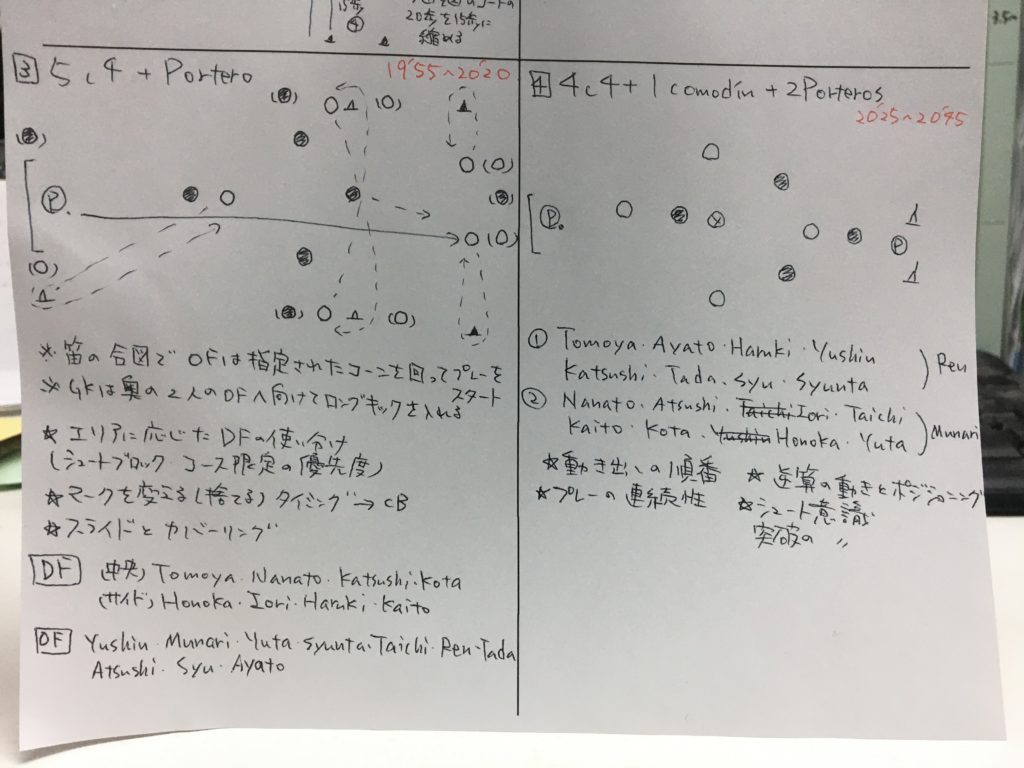 15歩
④
20歩を15歩に
縮める
3 5c4 + Portero
19'55~20'20
P.
(O)
(O)
(O)
(O)
(O)
※ 笛の合図でOFは指定されたコーンを回ってプレーを
スタート
※ GKは奥の2人のOFへ向けてロングキックを入れる
☆ エリアに応じたDFの使い分け
(シュートブロック・コース限定の優先度)
☆マークを変える(捨てる)タイミング→CB
☆スライドとカバーリング
DF (中央) Tomoya・Nanato・Katsushi・Kota
(サイド) Honoka・Iori・Haruki・Kaito
OF Yushin・Munari・Yuta・Syunta・Taichi・Ren・Tada
Atsushi・Syu・Ayato
4 4c4 + 1 comodín + 2Porteros
20'25~20'45
P.
P
① Tomoya・Ayato・Haruki・Yushin
Katsushi・Tada・Syu・Syunta
Ren
② Nanato・Atsushi・Taichi Iori・Taichi
Kaito・Kota・Yushin Honoka・Yuta
Munari
☆動き出しの順番
☆プレーの連続性
☆逆算の動きとポジショニング
☆シュート意識
突破の 〃